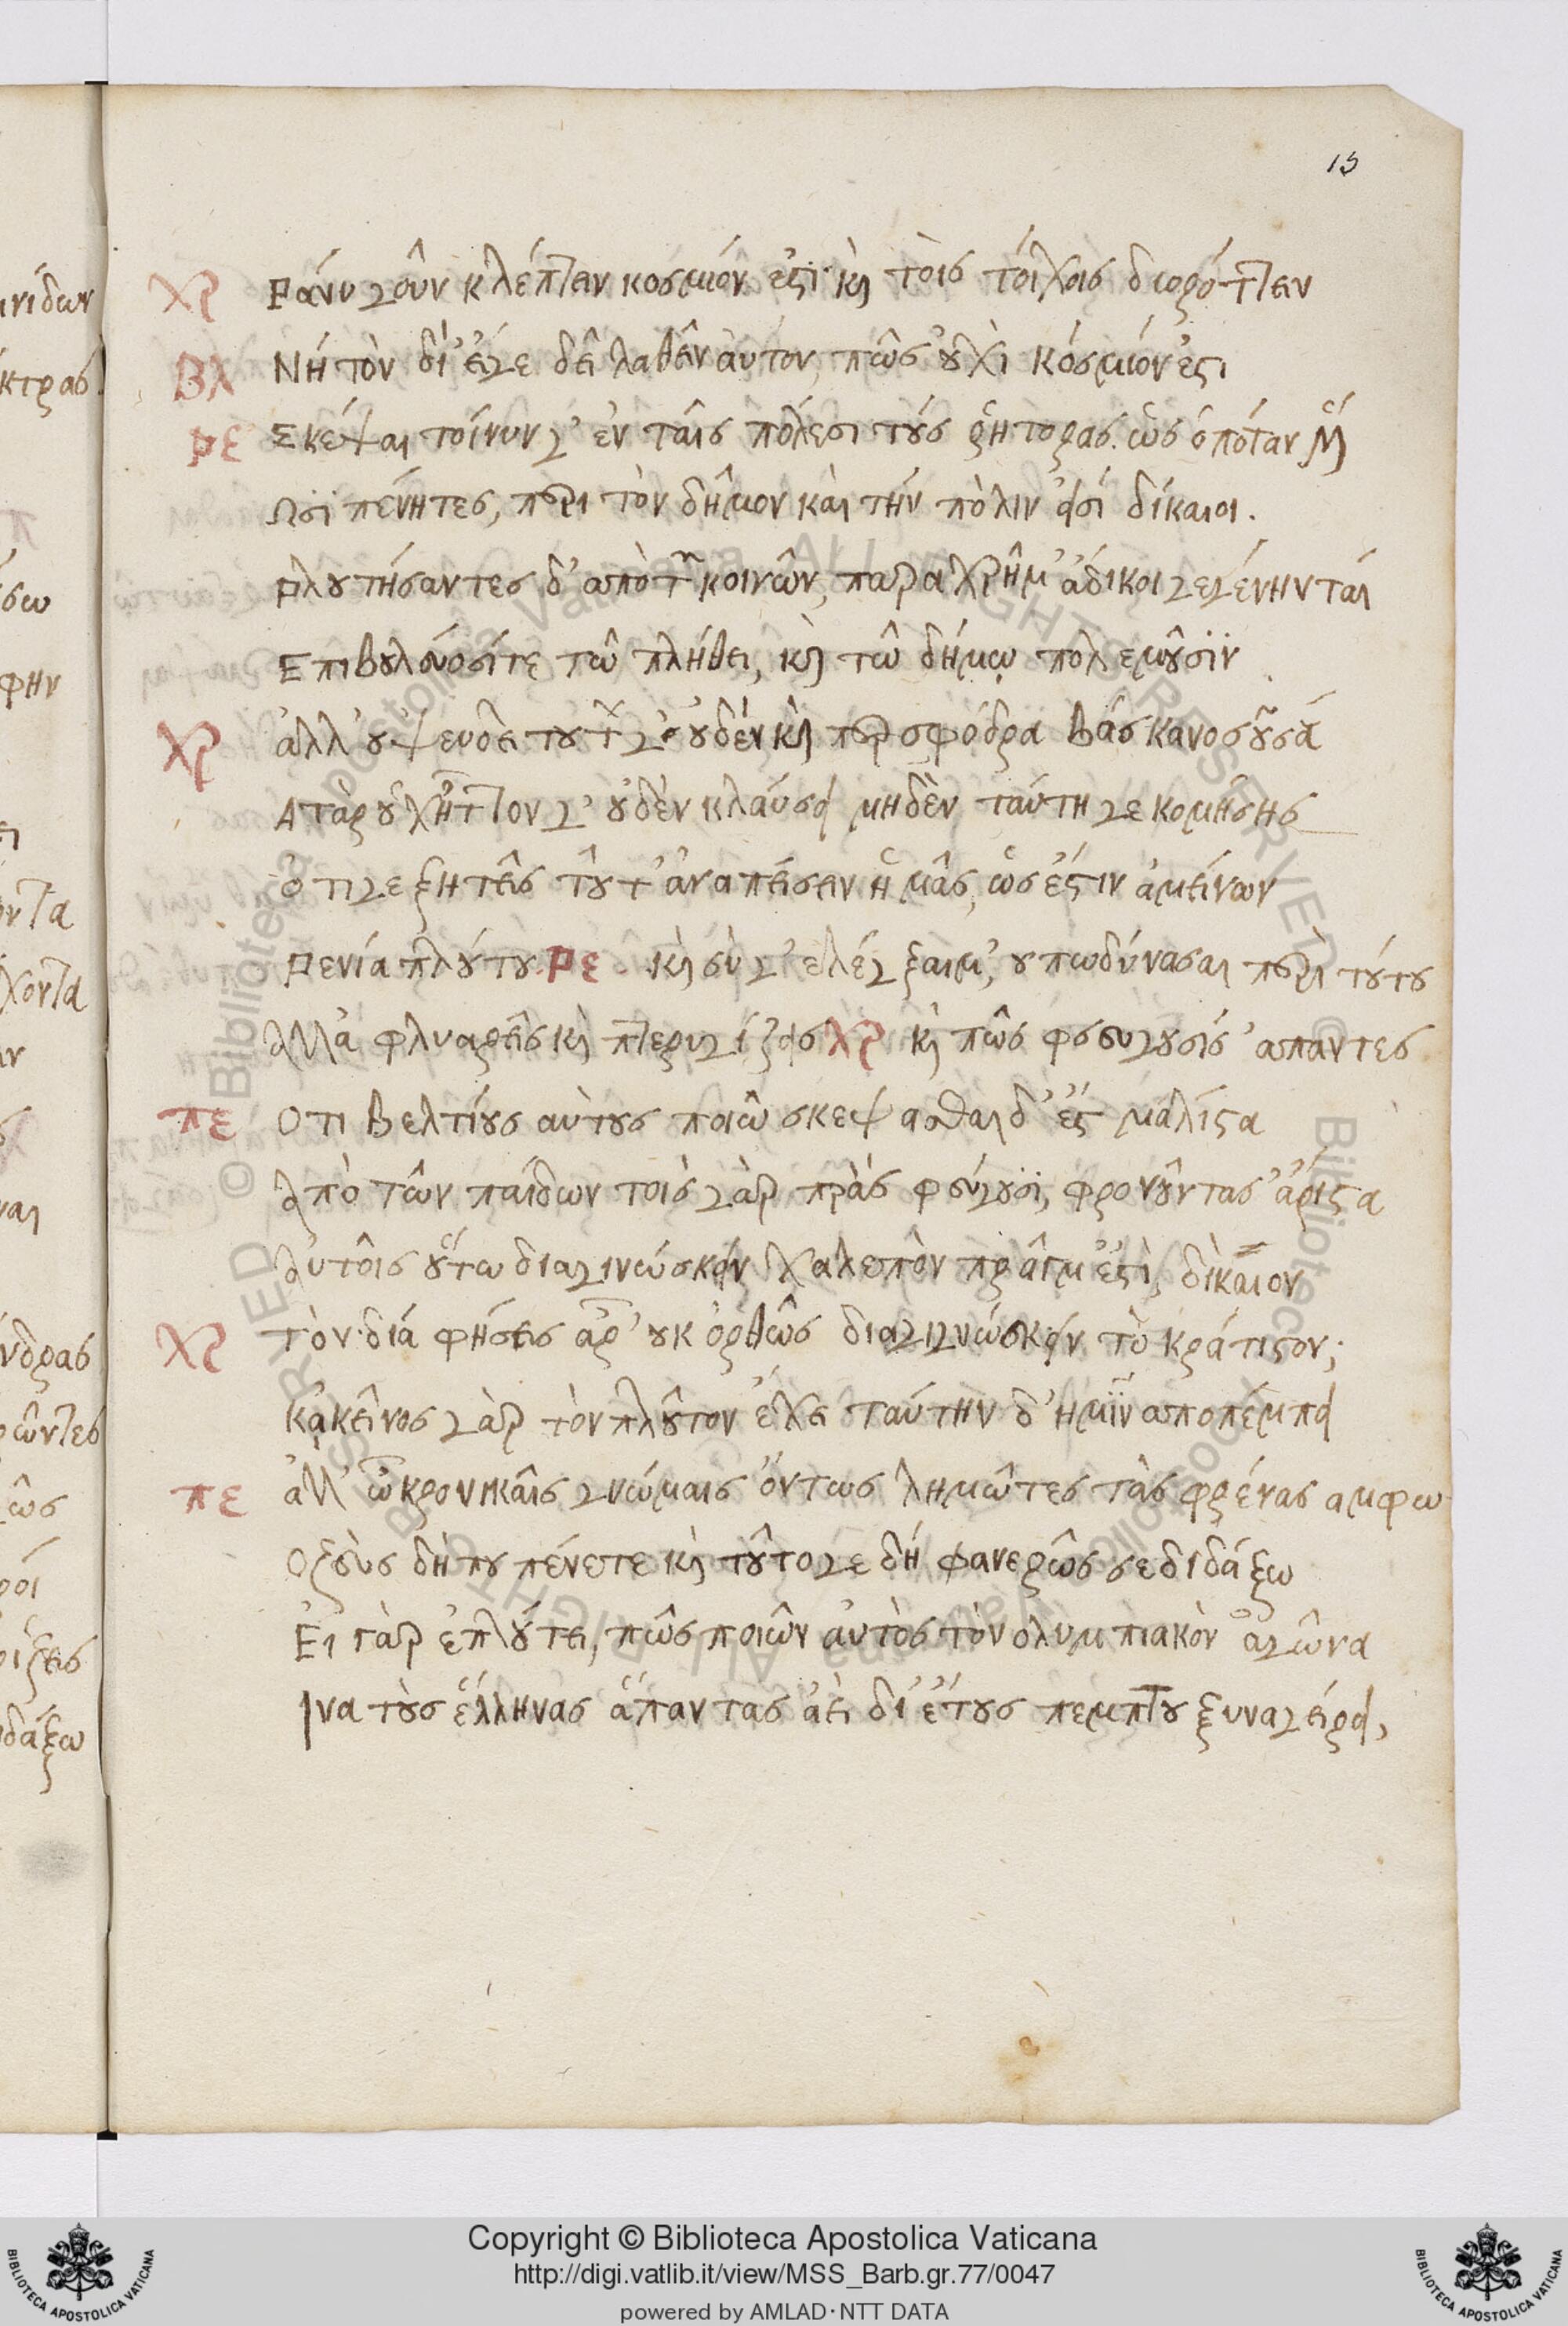 15
χρ Πάνυ γοῦν κλέπτειν κοσμιόν ἐστι· καὶ τοὶς τοίχοις διορύττειν
βλ Νή τὸν δί' εἴγε δεῖ λαθεῖν ἀυτον, πῶς οὐχὶ κόσμιόν ἐστι
πε Σκέψαι τοίνυν γ' ἐν ταῖς πόλεσι τοὺς ῥήτορας. ὡς ὁπόταν μὲν
Ωσὶ πένητες, περι τὸν δῆμον καὶ τὴν πόλιν εἰσί δίκαιοι.
πλουτήσαντες δ' απὸ τῶν κοινῶν, παραχρῆμ' ἄδικοι γεγένηνται
Επιβουλεύουσίτε τῶ πλήθει, καὶ τῶ δήμῳ πολεμοῦσϊν
χρ ἀλλ' οὐψευδει τουτων γ' οὐδὲν καὶ περ σφόδρα βάσκανος οὖσά
Ατὰρ οὐχ ἧττον γ' οὐδὲν κλαύσει μηδὲν ταύτη γε κομήσης
ὁτιγε ζητεῖς τοῦτ' ἀναπείσειν ἡμᾶς, ὡς ἐστιν ἀμείνων
πενία πλούτου. πε καὶ σύ γ' ελέγξαιμ' ουπωδύνασαι περὶ τούτου
ἀλλὰ φλυαρεῖς καὶ πτερυγίζεις χρ καὶ πῶς φευγουσίς' απαντες
πε Οτι βελτίους αὐτους ποιῶ σκεψασθαι δ' ἐστ μάλιστα
ἀπὸ τῶν παίδων τοὺς γὰρ πρὰς φεύγουσϊ, φρονοῦντας ἄριστα
ἀυτοῖς οὕτω διαγινώσκειν χαλεπὸν πρᾶγμ' ἐστὶ, δίκαιον
χρ τὸν δία φήσεις αρ' ουκ ὀρθῶς διαγιγνώσκειν τὸ κράτιστον;
Κᾀκεῖνος γὰρ τὸν πλοῦτον ἔχει ταύτην δ' ἡμῖν αποπέμπει
πε ἀλλ' ὦ κρονικαῖς γνώμαις ὄντως λημῶτες τὰς φρένας αμφω
Ο ζεὺς δήπου πένετε καὶ τοῦτο γε δή φανερῶς σε διδάξω
Εἰ γὰρ ἐπλούτει, πῶς ποιῶν ἀυτὸς τὸν ολυμπιακὸν ἀγῶνα
Ινα τοὺς ἕλληνας ἅπαντας ἀεὶ δι' ἔτους πεμπτου ξυναγείρει,
ινίδων
κτρας
σω
φην
οντα
χοντα
ναι
νδρας
οῶντες
ῶς
ρόι
ιξεις
ιδάξω
Copyright © Biblioteca Apostolica Vaticana
http://digi.vatlib.it/view/MSS_Barb.gr.77/0047
powered by AMLAD·NTT DATA
BIBLIOTECA APOSTOLICA VATICANA
BIBLIOTECA APOSTOLICA VATICANA